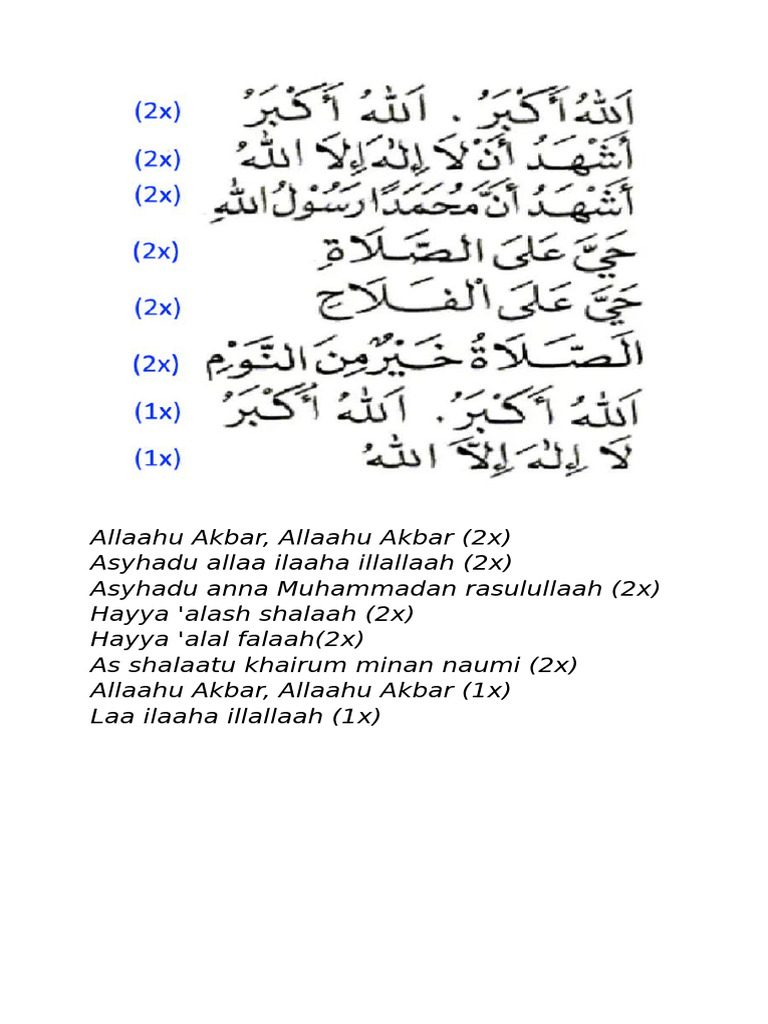 (2x) اَللهُ اَكْبَرُ . اَللهُ اَكْبَرُ
(2x) أَشْهَدُ أَنْ لَا إِلٰهَ إِلَا اللهُ
(2x) أَشْهَدُ أَنَّ مُحَمَدًا رَسُوْلُ اللهِ
(2x) حَيَّ عَلَى الصَّلَاةِ
(2x) حَيَّ عَلَى الْفَلَاحِ
(2x) الَصَّلَاةُ خَيْرٌ مِنَ النَّوْمِ
(1x) اَللهُ اَكْبَرُ . اَللهُ اَكْبَرُ
(1x) لَا إِلٰهَ إِلَّا اللهُ
Allaahu Akbar, Allaahu Akbar (2x)
Asyhadu allaa ilaaha illallaah (2x)
Asyhadu anna Muhammadan rasulullaah (2x)
Hayya 'alash shalaah (2x)
Hayya 'alal falaah(2x)
As shalaatu khairum minan naumi (2x)
Allaahu Akbar, Allaahu Akbar (1x)
Laa ilaaha illallaah (1x)